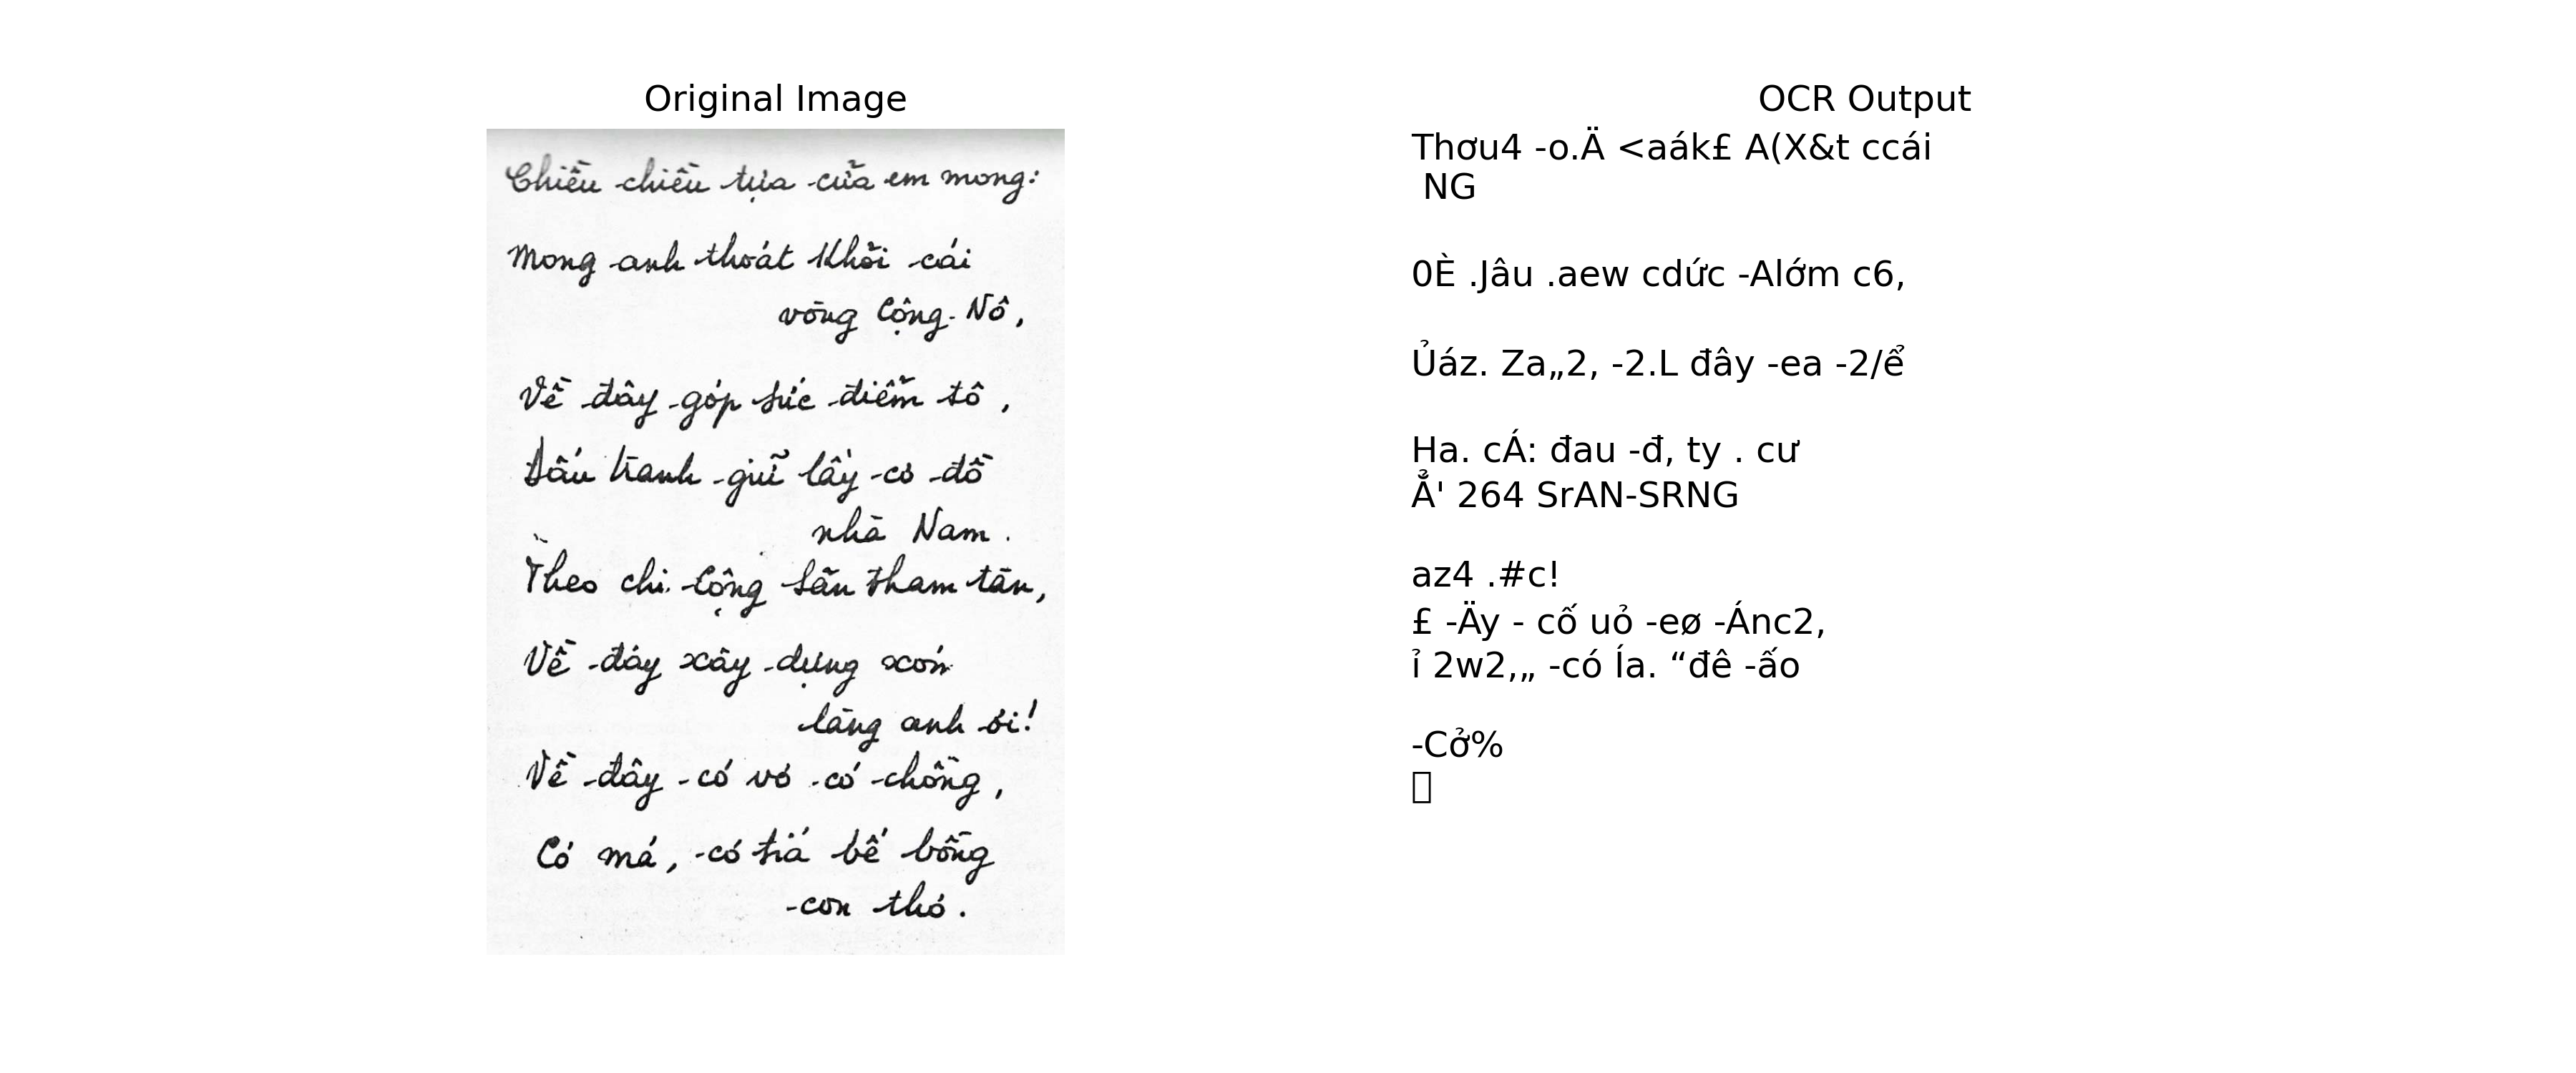 Original Image
Chiều chiều tựa cửa em mong:
Mong anh thoát khỏi cái
vòng Cộng-Nô,
Về đây góp sức điểm tô,
Đấu tranh giữ lấy cơ đồ
nhà Nam.
Theo chi Cộng sản tham tàn,
Về đây xây dựng xóm
làng anh ơi!
Về đây có vợ có chồng,
Có má, có tía bế bồng
con thơ.
OCR Output
Thơu4 -o.Ä <aák£ A(X&t ccái
NG
0È .Jâu .aew cdức -Alớm c6,
Ủáz. Za„2, -2.L đây -ea -2/ể
Ha. cÁ: đau -đ, ty . cư
Ẳ' 264 SrAN-SRNG
az4 .#c!
£ -Äy - cố uỏ -eø -Ánc2,
ỉ 2w2,„ -có Ía. “đê -ấo
-Cở%